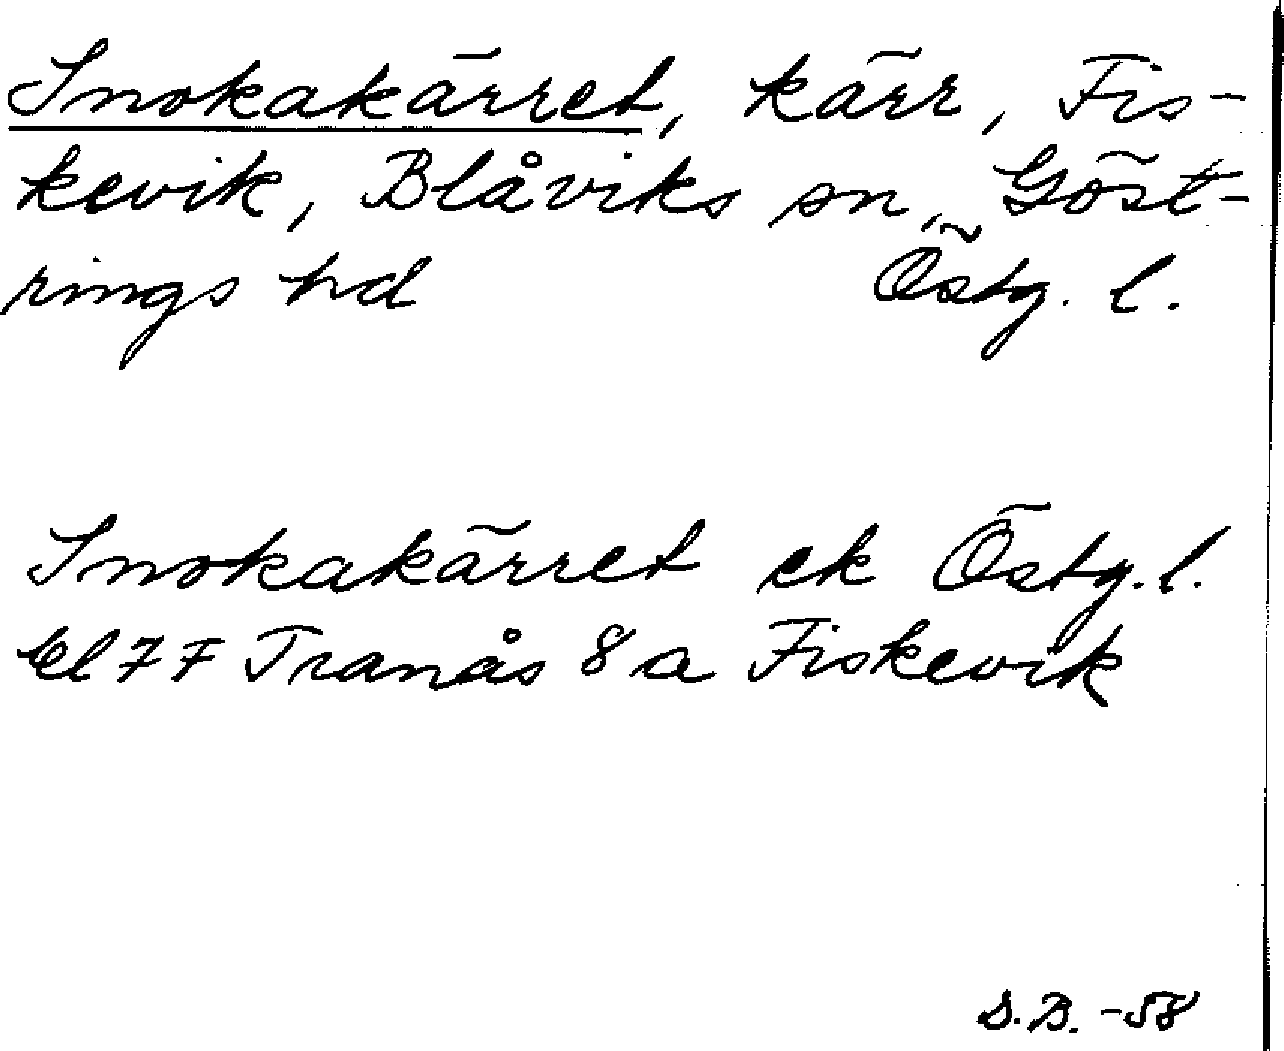 Snokakärret, kärr, Fis-
kevik, Blåviks sn, Göst-
rings hd Östg. l.
Snokakärret ek Östg. l.
bl 77 Tranås 8 a Fiskevik
S.B. -58